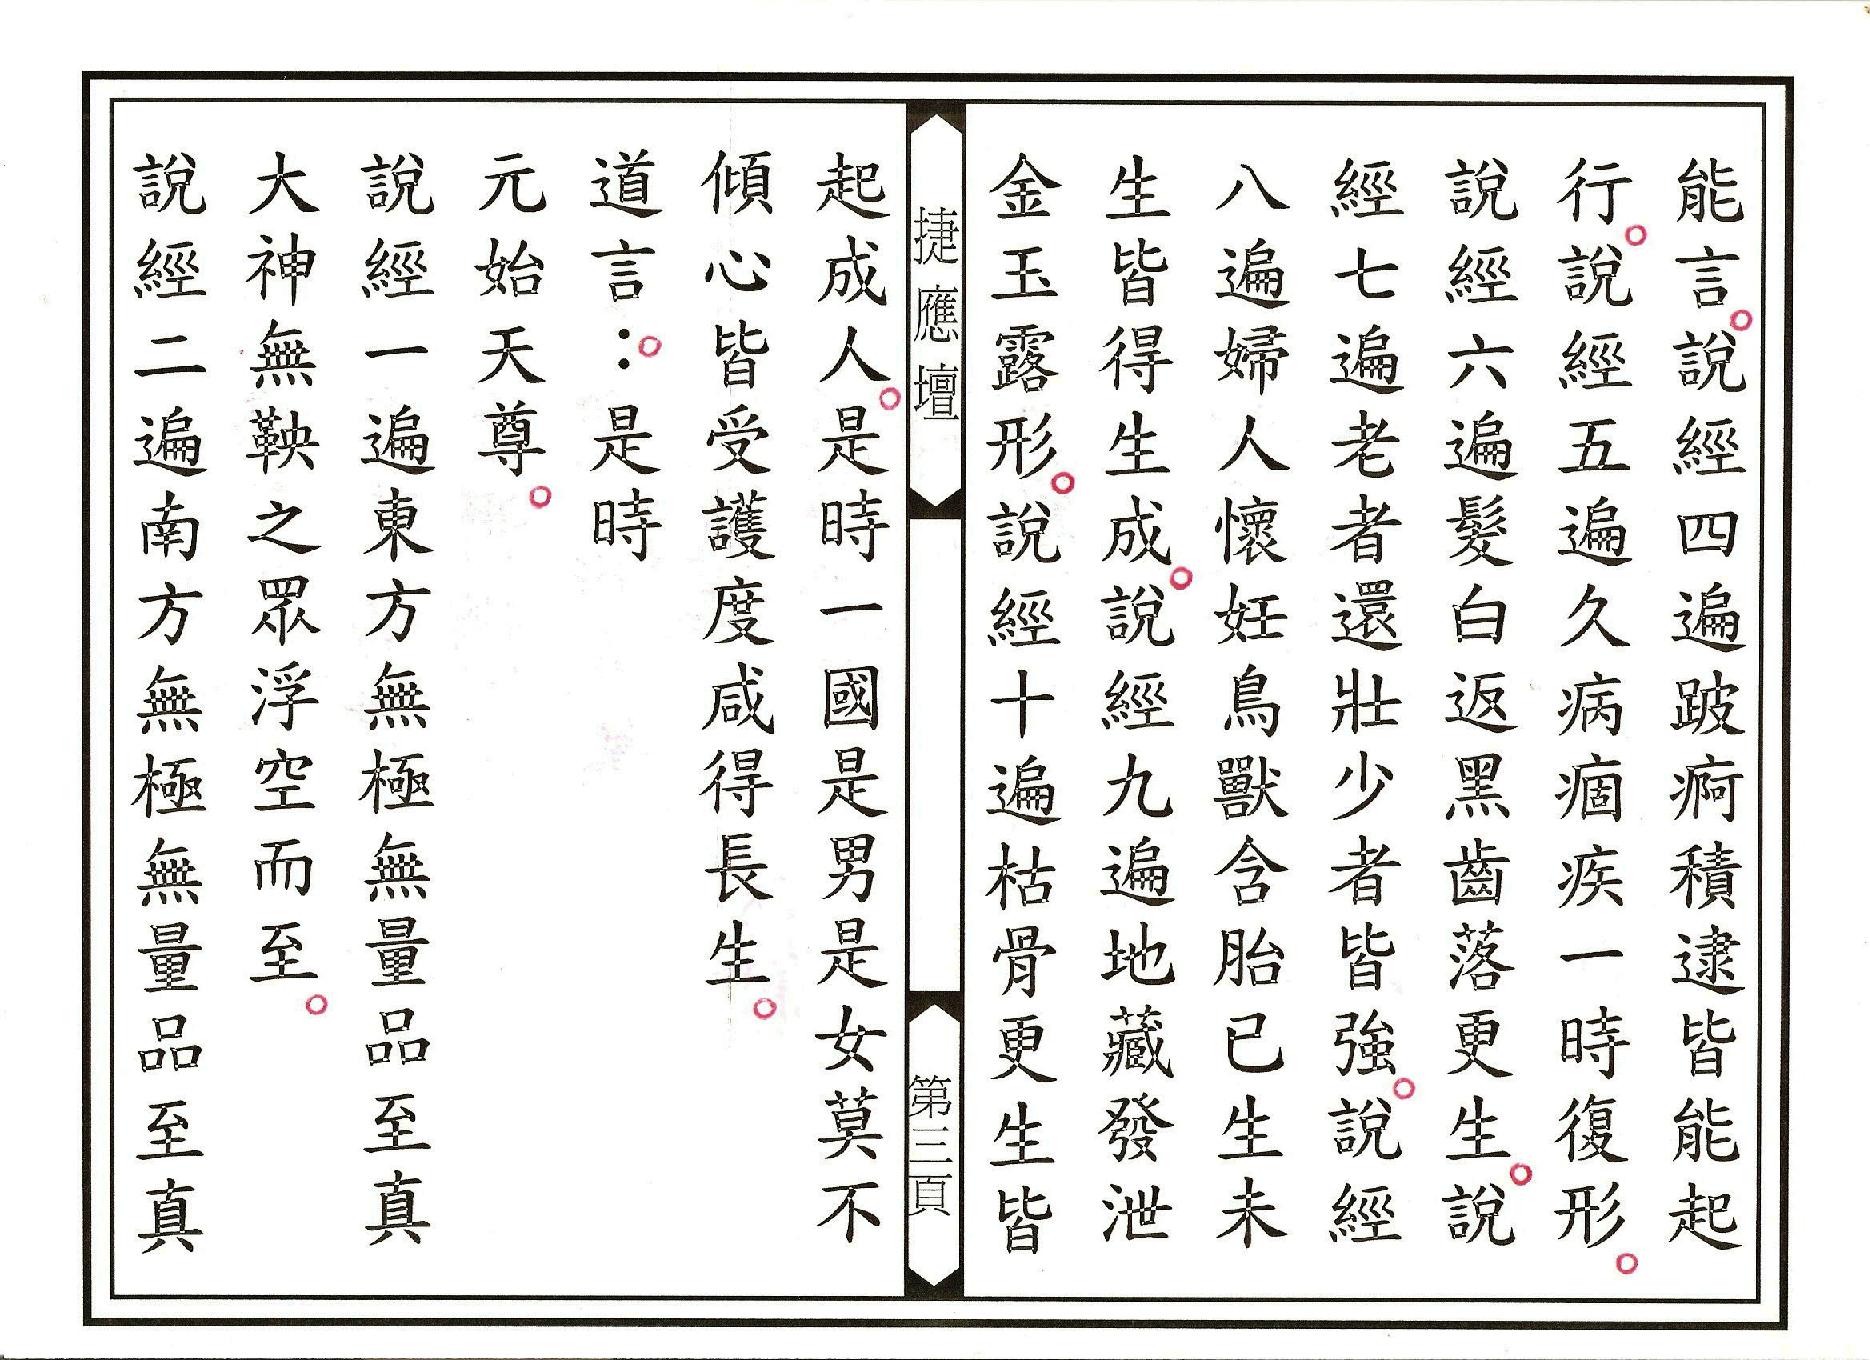 能言。說經四遍跛痾積逮皆能起
行。說經五遍久病痼疾一時復形。
說經六遍髮白返黑齒落更生。說
經七遍老者還壯少者皆強。說經
八遍婦人懷妊鳥獸含胎已生未
生皆得生成。說經九遍地藏發泄
金玉露形。說經十遍枯骨更生皆
捷應壇
第三頁
起成人。是時一國是男是女莫不
傾心皆受護度咸得長生。
道言：。是時
元始天尊。
說經一遍東方無極無量品至真
大神無鞅之眾浮空而至。
說經二遍南方無極無量品至真